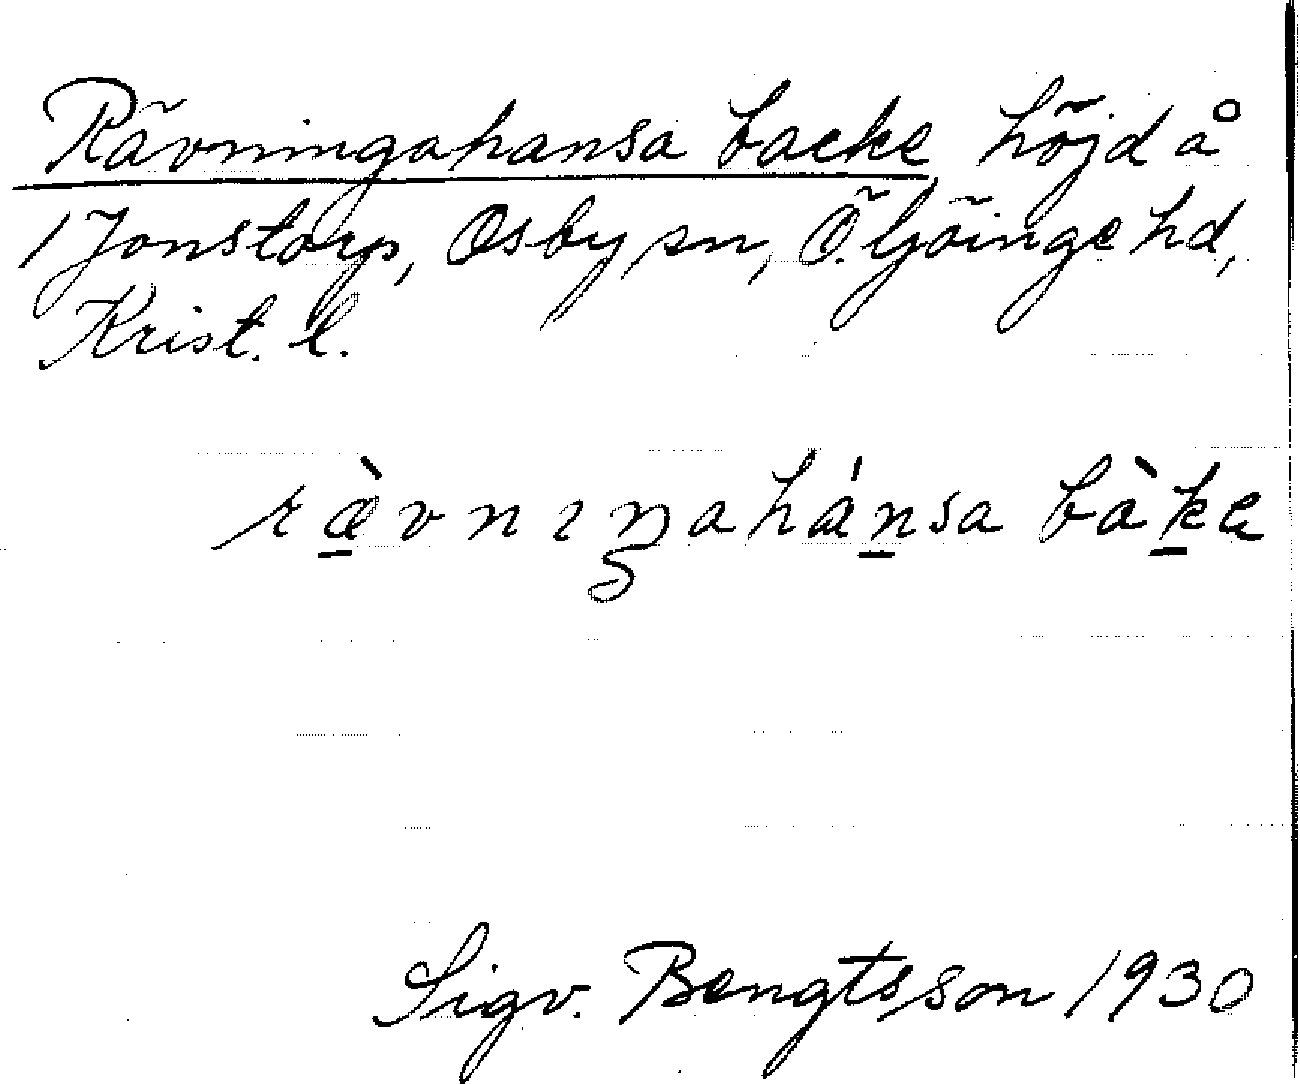 Rävningahansa backe höjd å
1 Jonstorp, Osby sn, Ö. Göinge hd,
Krist. l.
ræ̠̀vnıŋahán̠sa bàk̠e
Sigv. Bengtsson 1930